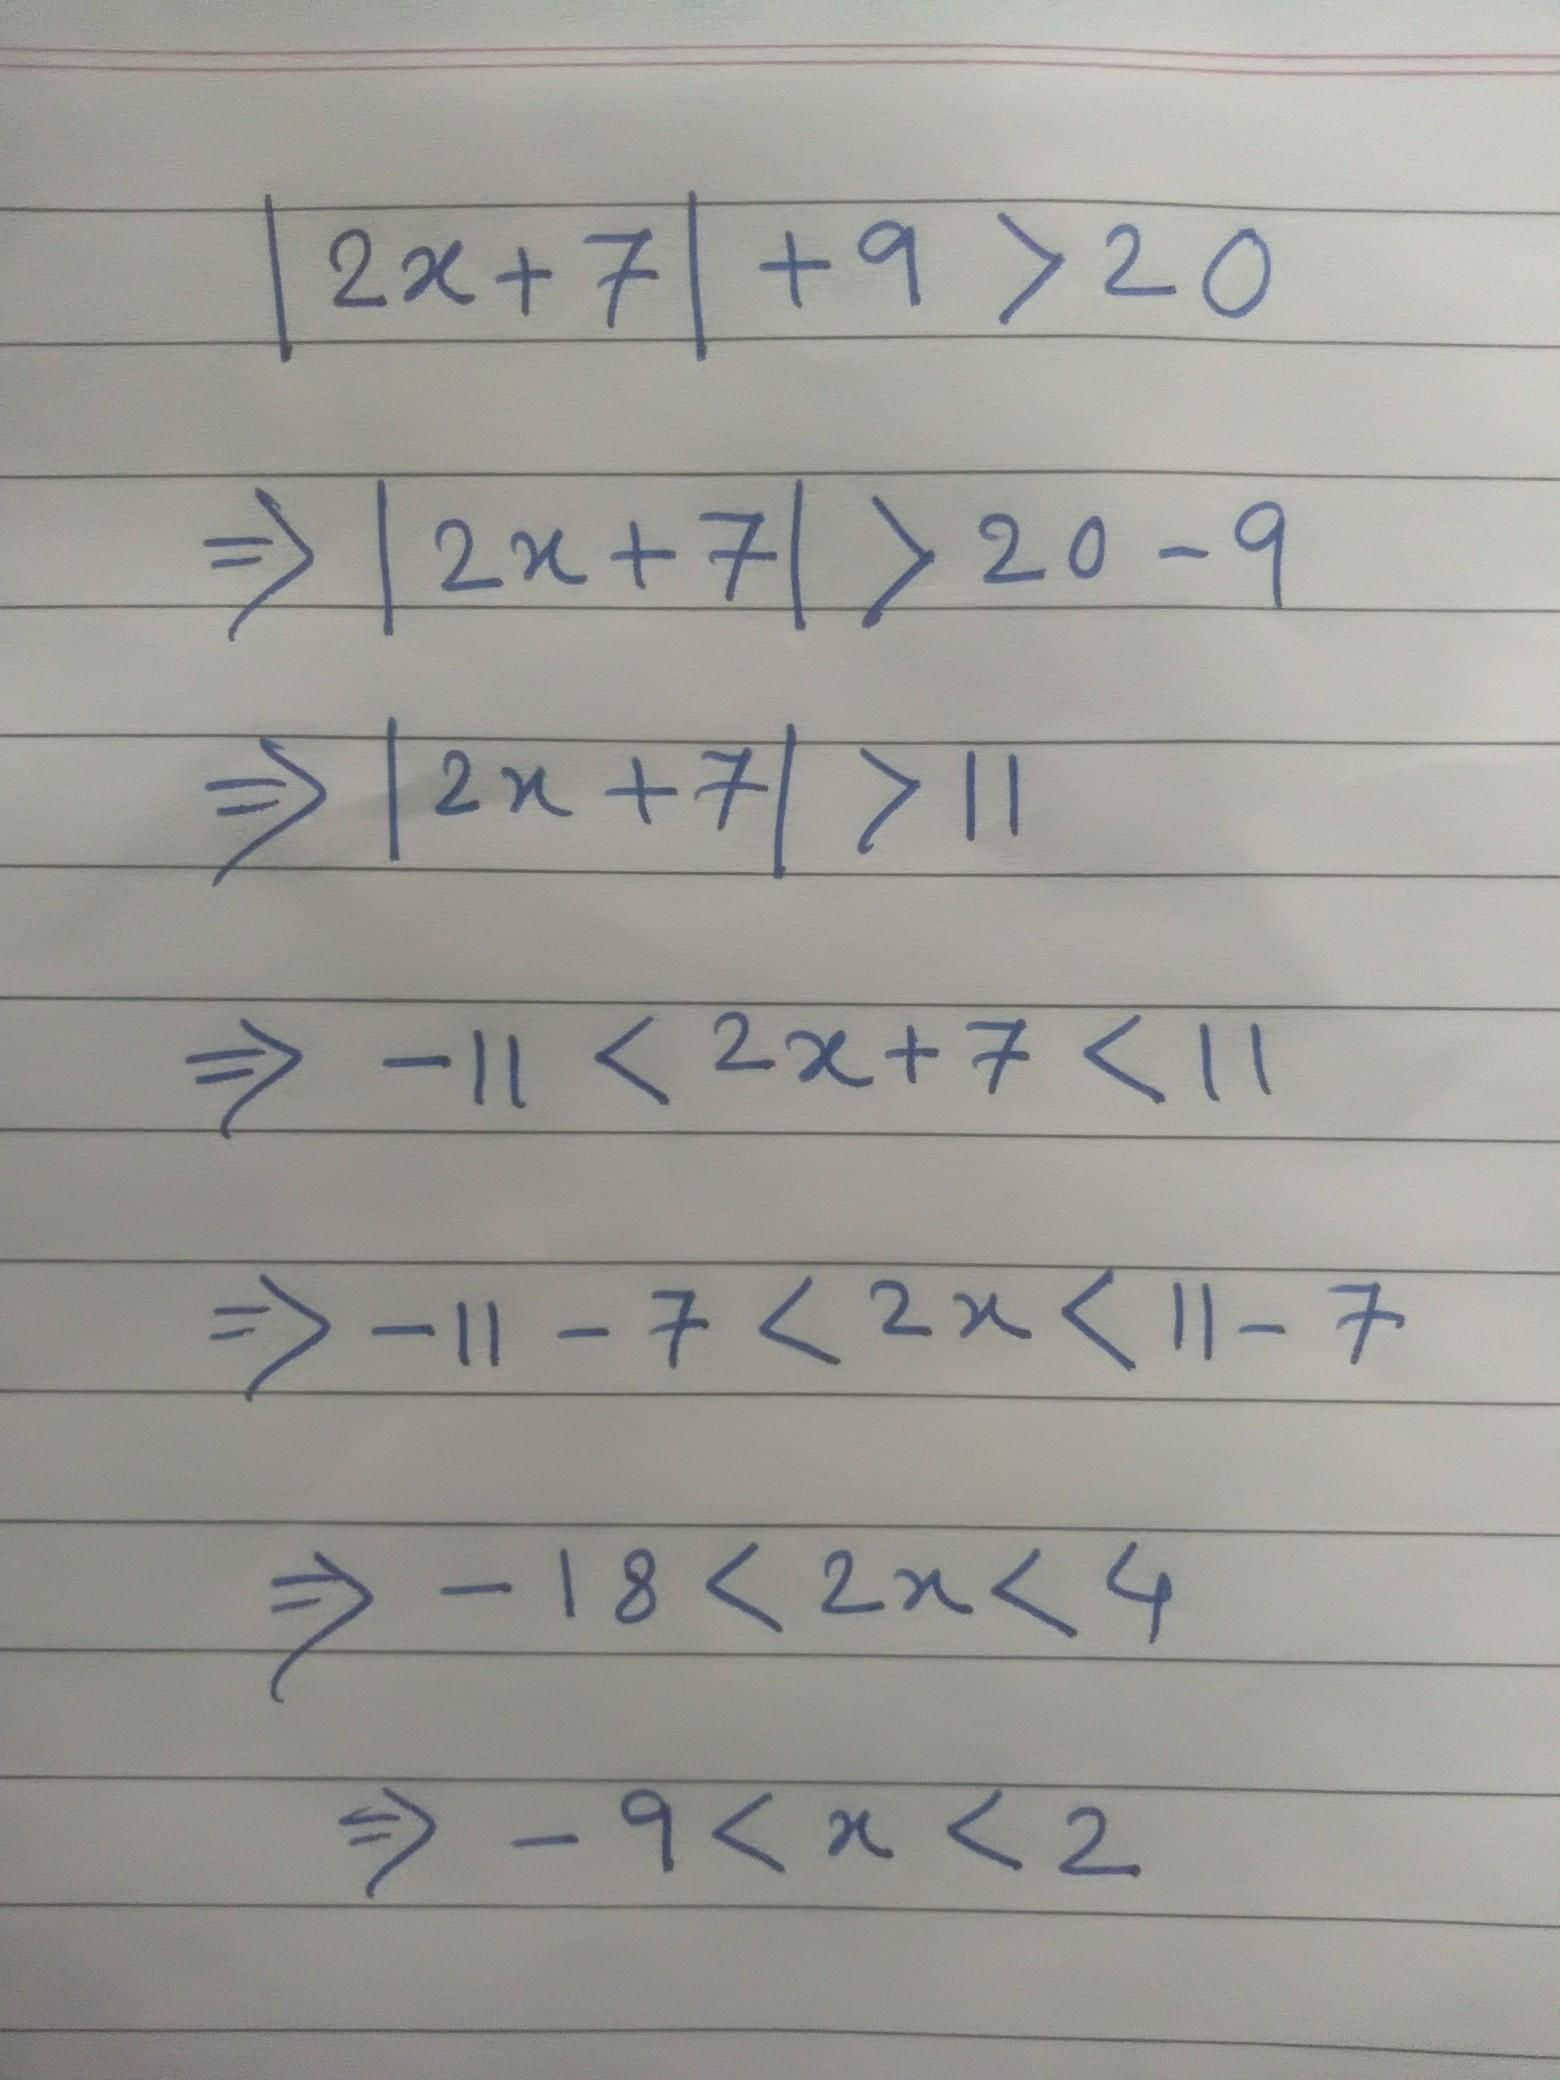 |2x+7| +9 >20
⇒ |2x+7| > 20-9
⇒ |2x+7| > 11
⇒ -11 < 2x+7 < 11
⇒ -11-7 < 2x < 11-7
⇒ -18 < 2x < 4
⇒ -9 < x < 2